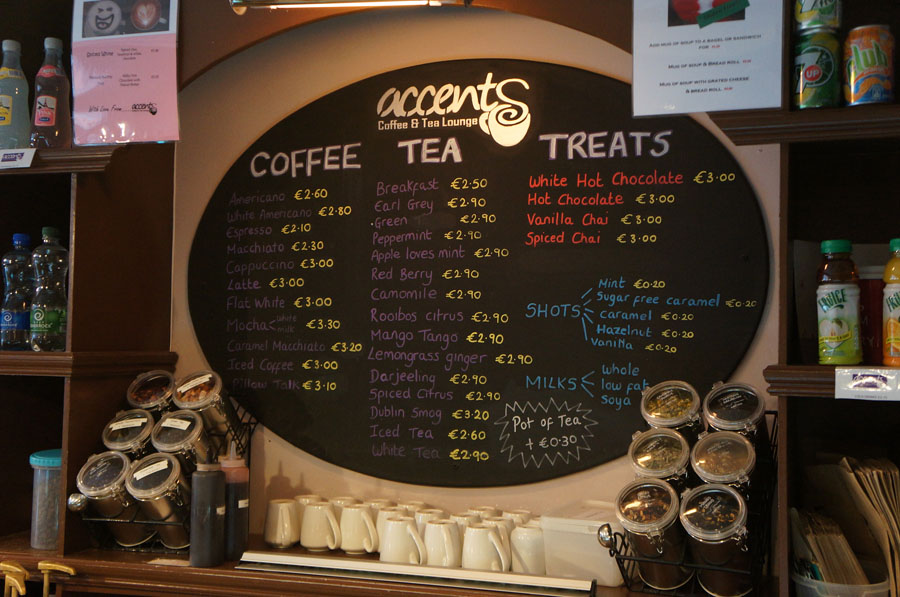 accents
Coffee & Tea Lounge
COFFEE
Americano €2.60
White Americano €2.80
Espresso €2.10
Macchiato €2.30
Cappuccino €3.00
Latte €3.00
Flat White €3.00
Mocha white milk €3.30
Caramel Macchiato €3.20
Iced Coffee €3.00
Pillow Talk €3.10
TEA
Breakfast €2.50
Earl Grey €2.90
Green €2.90
Peppermint €2.90
Apple loves mint €2.90
Red Berry €2.90
Camomile €2.90
Rooibos citrus €2.90
Mango Tango €2.90
Lemongrass ginger €2.90
Darjeeling €2.90
Spiced Citrus €2.90
Dublin Smog €3.20
Iced Tea €2.60
White Tea €2.90
TREATS
White Hot Chocolate €3.00
Hot Chocolate €3.00
Vanilla Chai €3.00
Spiced Chai €3.00
SHOTS
Mint €0.20
Sugar free caramel €0.20
caramel €0.20
Hazelnut €0.20
Vanilla €0.20
MILKS
whole
low fat
Soya
Pot of Tea
+ €0.30
Add mug of soup to a bagel or sandwich
for
Mug of soup & Bread roll
Mug of soup with grated cheese
& Bread roll
With Love From
accents
7UP